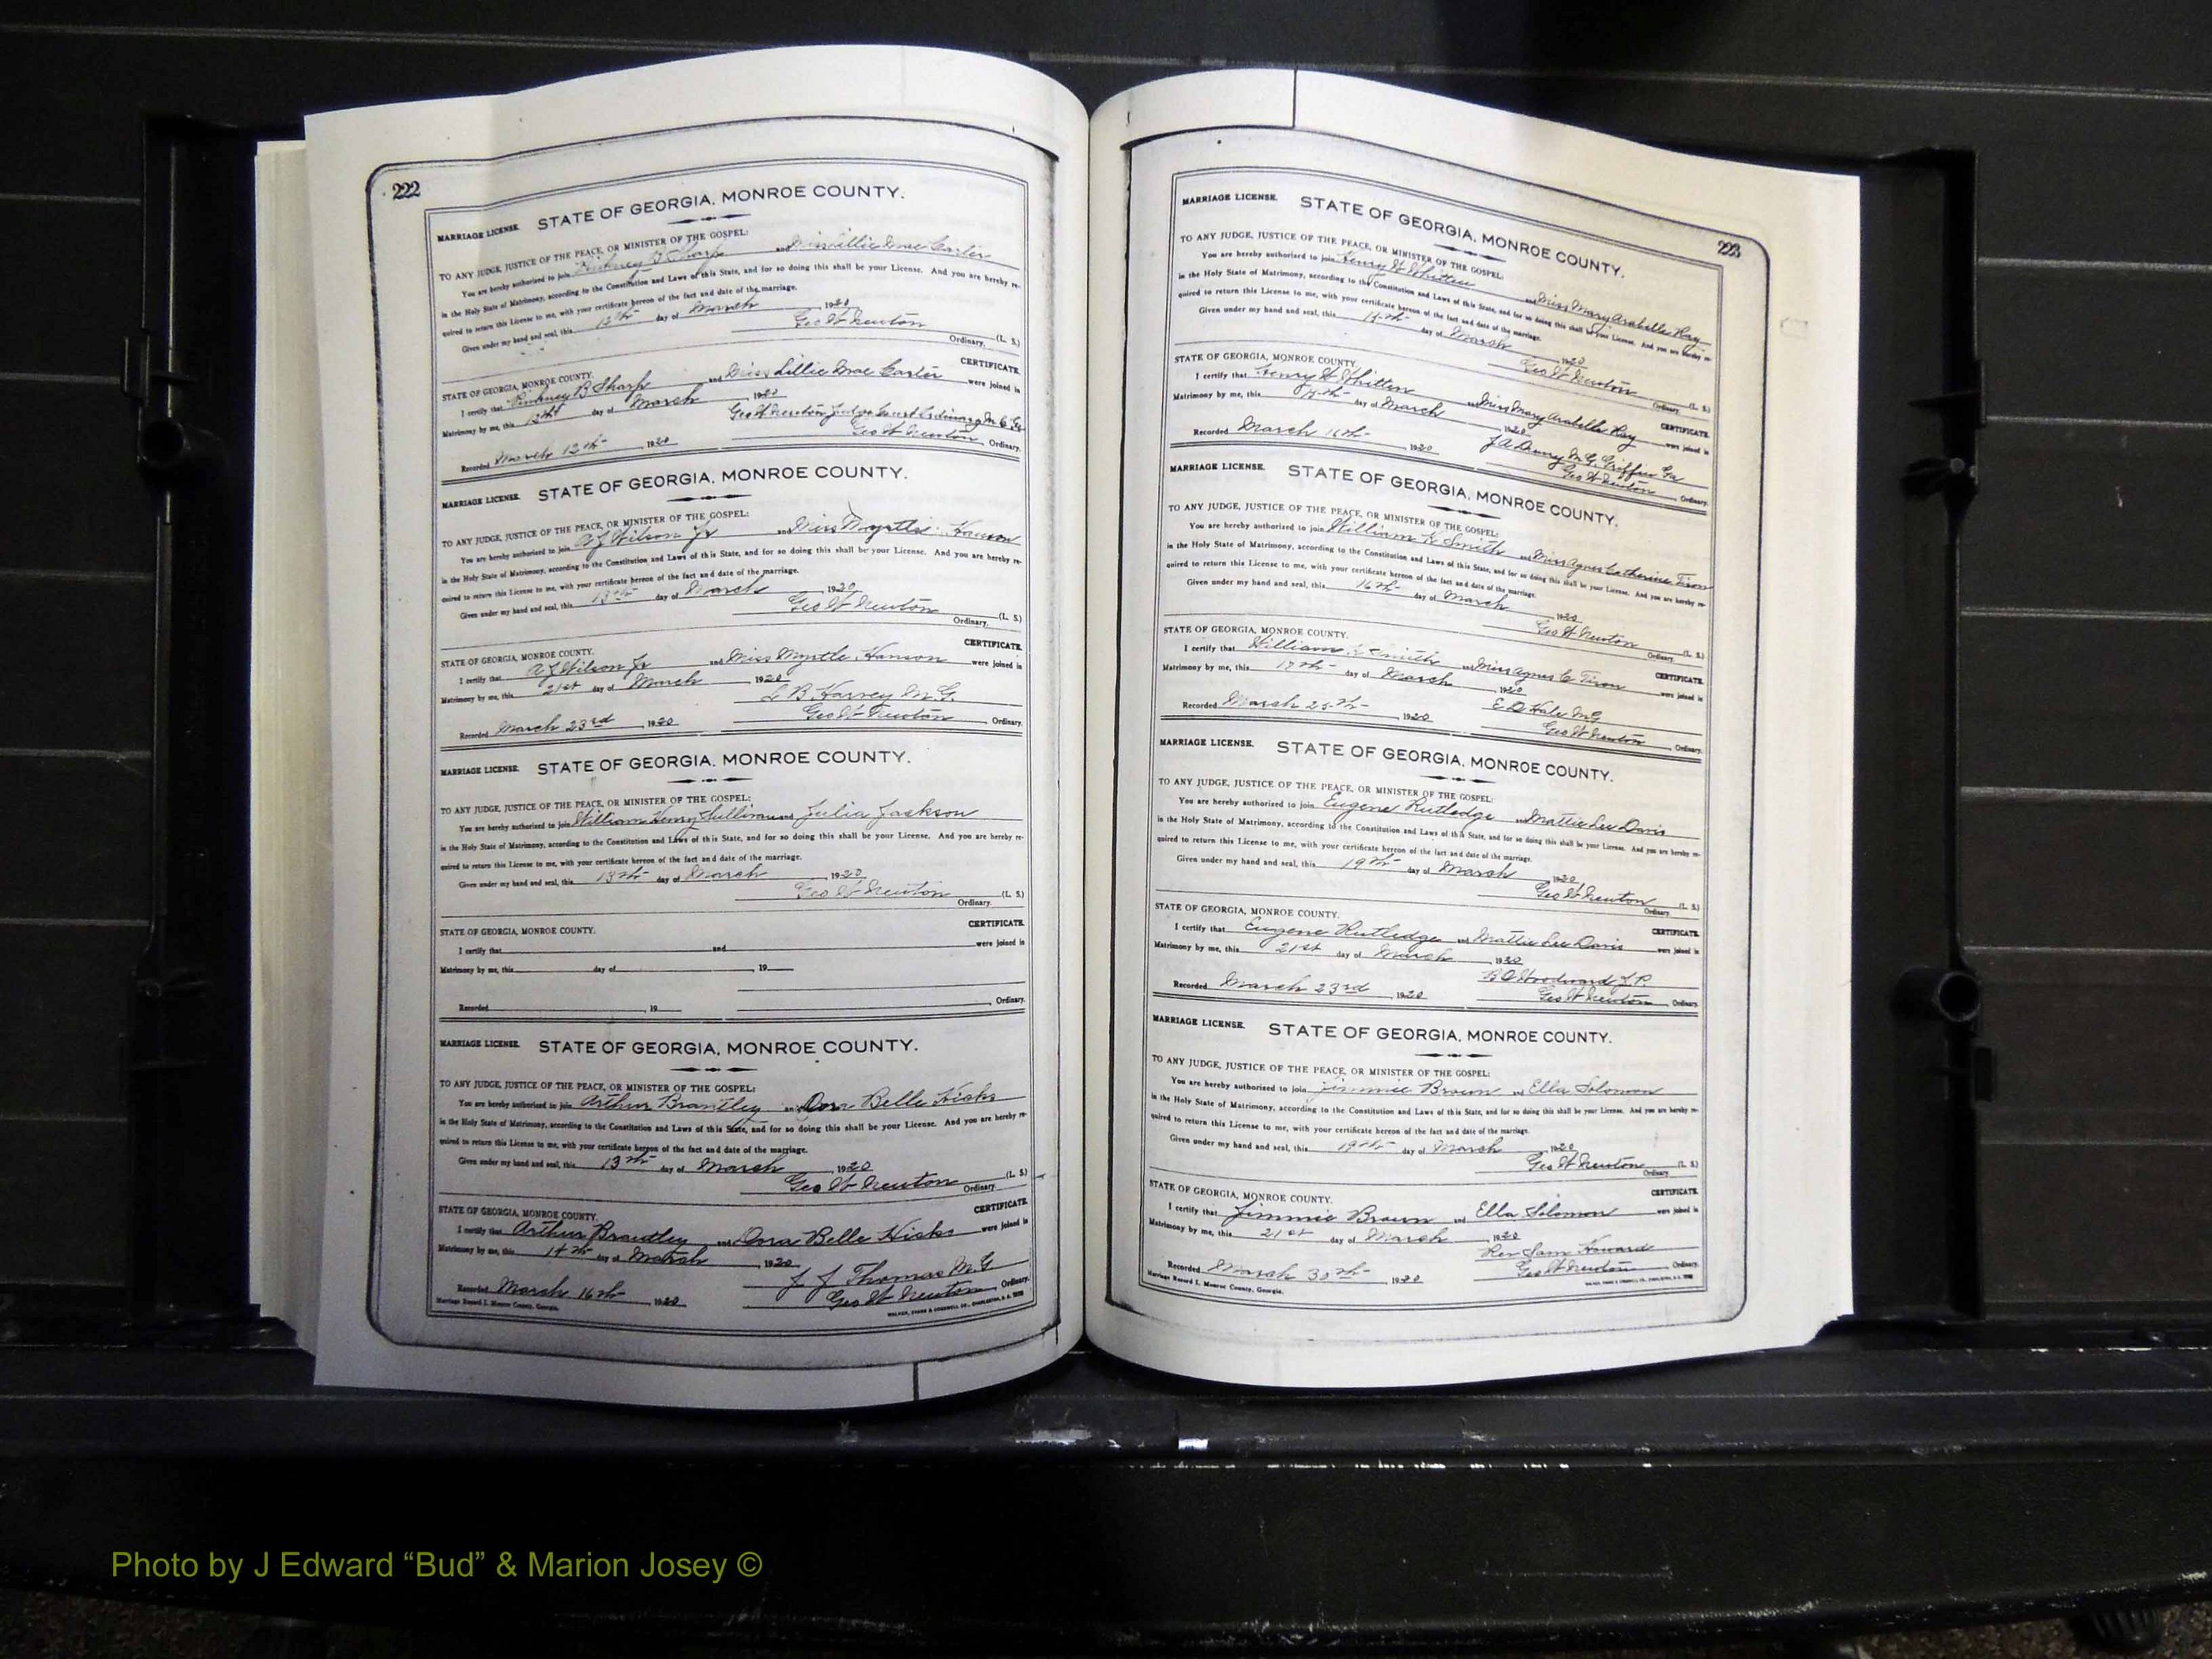 222
MARRIAGE LICENSE. STATE OF GEORGIA, MONROE COUNTY.
TO ANY JUDGE, JUSTICE OF THE PEACE, OR MINISTER OF THE GOSPEL:
You are hereby authorized to join Pinkney B Sharp and Miss Lillie Mae Carter
in the Holy State of Matrimony, according to the Constitution and Laws of this State, and for so doing this shall be your License. And you are hereby re-
quired to return this License to me, with your certificate hereon of the fact and date of the marriage.
Given under my hand and seal, this 12th day of March 1920
Geo W Newton (L. S.)
Ordinary.
STATE OF GEORGIA, MONROE COUNTY. CERTIFICATE.
I certify that Pinkney B Sharp and Miss Lillie Mae Carter were joined in
Matrimony by me, this 12th day of March 1920
Geo W Newton Judge Court Ordinary M C Ga
Recorded March 12th 1920 Geo W Newton Ordinary.
MARRIAGE LICENSE. STATE OF GEORGIA, MONROE COUNTY.
TO ANY JUDGE, JUSTICE OF THE PEACE, OR MINISTER OF THE GOSPEL:
You are hereby authorized to join A J Wilson Jr and Miss Myrtle Hanson
in the Holy State of Matrimony, according to the Constitution and Laws of this State, and for so doing this shall be your License. And you are hereby re-
quired to return this License to me, with your certificate hereon of the fact and date of the marriage.
Given under my hand and seal, this 13th day of March 1920
Geo W Newton (L. S.)
Ordinary.
STATE OF GEORGIA, MONROE COUNTY. CERTIFICATE.
I certify that A J Wilson Jr and Miss Myrtle Hanson were joined in
Matrimony by me, this 21st day of March 1920
L B Harvey M.G.
Recorded March 23rd 1920 Geo W Newton Ordinary.
MARRIAGE LICENSE. STATE OF GEORGIA, MONROE COUNTY.
TO ANY JUDGE, JUSTICE OF THE PEACE, OR MINISTER OF THE GOSPEL:
You are hereby authorized to join William Henry Sullivan and Julia Jackson
in the Holy State of Matrimony, according to the Constitution and Laws of this State, and for so doing this shall be your License. And you are hereby re-
quired to return this License to me, with your certificate hereon of the fact and date of the marriage.
Given under my hand and seal, this 13th day of March 1920
Geo W Newton (L. S.)
Ordinary.
STATE OF GEORGIA, MONROE COUNTY. CERTIFICATE.
I certify that and were joined in
Matrimony by me, this day of , 19
Recorded , 19 , Ordinary.
MARRIAGE LICENSE. STATE OF GEORGIA, MONROE COUNTY.
TO ANY JUDGE, JUSTICE OF THE PEACE, OR MINISTER OF THE GOSPEL:
You are hereby authorized to join Arthur Brantley and Dora Belle Hicks
in the Holy State of Matrimony, according to the Constitution and Laws of this State, and for so doing this shall be your License. And you are hereby re-
quired to return this License to me, with your certificate hereon of the fact and date of the marriage.
Given under my hand and seal, this 13th day of March , 1920
Geo W Newton (L. S.)
Ordinary.
STATE OF GEORGIA, MONROE COUNTY. CERTIFICATE.
I certify that Arthur Brantley and Dora Belle Hicks were joined in
Matrimony by me, this 14th day of March , 1920
J J Thomas M.G
Recorded March 16th , 1920 Geo W Newton , Ordinary.
Marriage Record I. Monroe County, Georgia.
223
MARRIAGE LICENSE. STATE OF GEORGIA, MONROE COUNTY.
TO ANY JUDGE, JUSTICE OF THE PEACE, OR MINISTER OF THE GOSPEL:
You are hereby authorized to join Henry W Whitten and Miss Mary Arabella Ray
in the Holy State of Matrimony, according to the Constitution and Laws of this State, and for so doing this shall be your License. And you are hereby re-
quired to return this License to me, with your certificate hereon of the fact and date of the marriage.
Given under my hand and seal, this day of March 1920
Geo W Newton (L. S.)
Ordinary.
STATE OF GEORGIA, MONROE COUNTY. CERTIFICATE.
I certify that Henry W Whitten and Miss Mary Arabella Ray were joined in
Matrimony by me, this day of March 1920
J A Drewry M.G. Griffin Ga
Recorded March 16th 1920 Geo W Newton , Ordinary.
MARRIAGE LICENSE. STATE OF GEORGIA, MONROE COUNTY.
TO ANY JUDGE, JUSTICE OF THE PEACE, OR MINISTER OF THE GOSPEL:
You are hereby authorized to join William K Smith and Miss Agnes Catherine Tison
in the Holy State of Matrimony, according to the Constitution and Laws of this State, and for so doing this shall be your License. And you are hereby re-
quired to return this License to me, with your certificate hereon of the fact and date of the marriage.
Given under my hand and seal, this 16th day of March 1920
Geo W Newton (L. S.)
Ordinary.
STATE OF GEORGIA, MONROE COUNTY. CERTIFICATE.
I certify that William K Smith and Miss Agnes C Tison were joined in
Matrimony by me, this 17th day of March , 1920
E D Hale MG
Recorded March 25th , 1920 Geo W Newton , Ordinary.
MARRIAGE LICENSE. STATE OF GEORGIA, MONROE COUNTY.
TO ANY JUDGE, JUSTICE OF THE PEACE, OR MINISTER OF THE GOSPEL:
You are hereby authorized to join Eugene Rutledge and Mattie Lee Davis
in the Holy State of Matrimony, according to the Constitution and Laws of this State, and for so doing this shall be your License. And you are hereby re-
quired to return this License to me, with your certificate hereon of the fact and date of the marriage.
Given under my hand and seal, this 19th day of March 1920
Geo W Newton (L. S.)
Ordinary.
STATE OF GEORGIA, MONROE COUNTY. CERTIFICATE.
I certify that Eugene Rutledge and Mattie Lee Davis were joined in
Matrimony by me, this 21st day of March , 1920
B O Woodward J.P.
Recorded March 23rd , 1920 Geo W Newton , Ordinary.
MARRIAGE LICENSE. STATE OF GEORGIA, MONROE COUNTY.
TO ANY JUDGE, JUSTICE OF THE PEACE, OR MINISTER OF THE GOSPEL:
You are hereby authorized to join Jimmie Brown and Ella Solomon
in the Holy State of Matrimony, according to the Constitution and Laws of this State, and for so doing this shall be your License. And you are hereby re-
quired to return this License to me, with your certificate hereon of the fact and date of the marriage.
Given under my hand and seal, this 19th day of March , 1920
Geo W Newton (L. S.)
Ordinary.
STATE OF GEORGIA, MONROE COUNTY. CERTIFICATE.
I certify that Jimmie Brown and Ella Solomon were joined in
Matrimony by me, this 21st day of March , 1920
Rev Sam Howard
Recorded March 30th , 1920 Geo W Newton , Ordinary.
Marriage Record I. Monroe County, Georgia.
Photo by J Edward “Bud” & Marion Josey ©